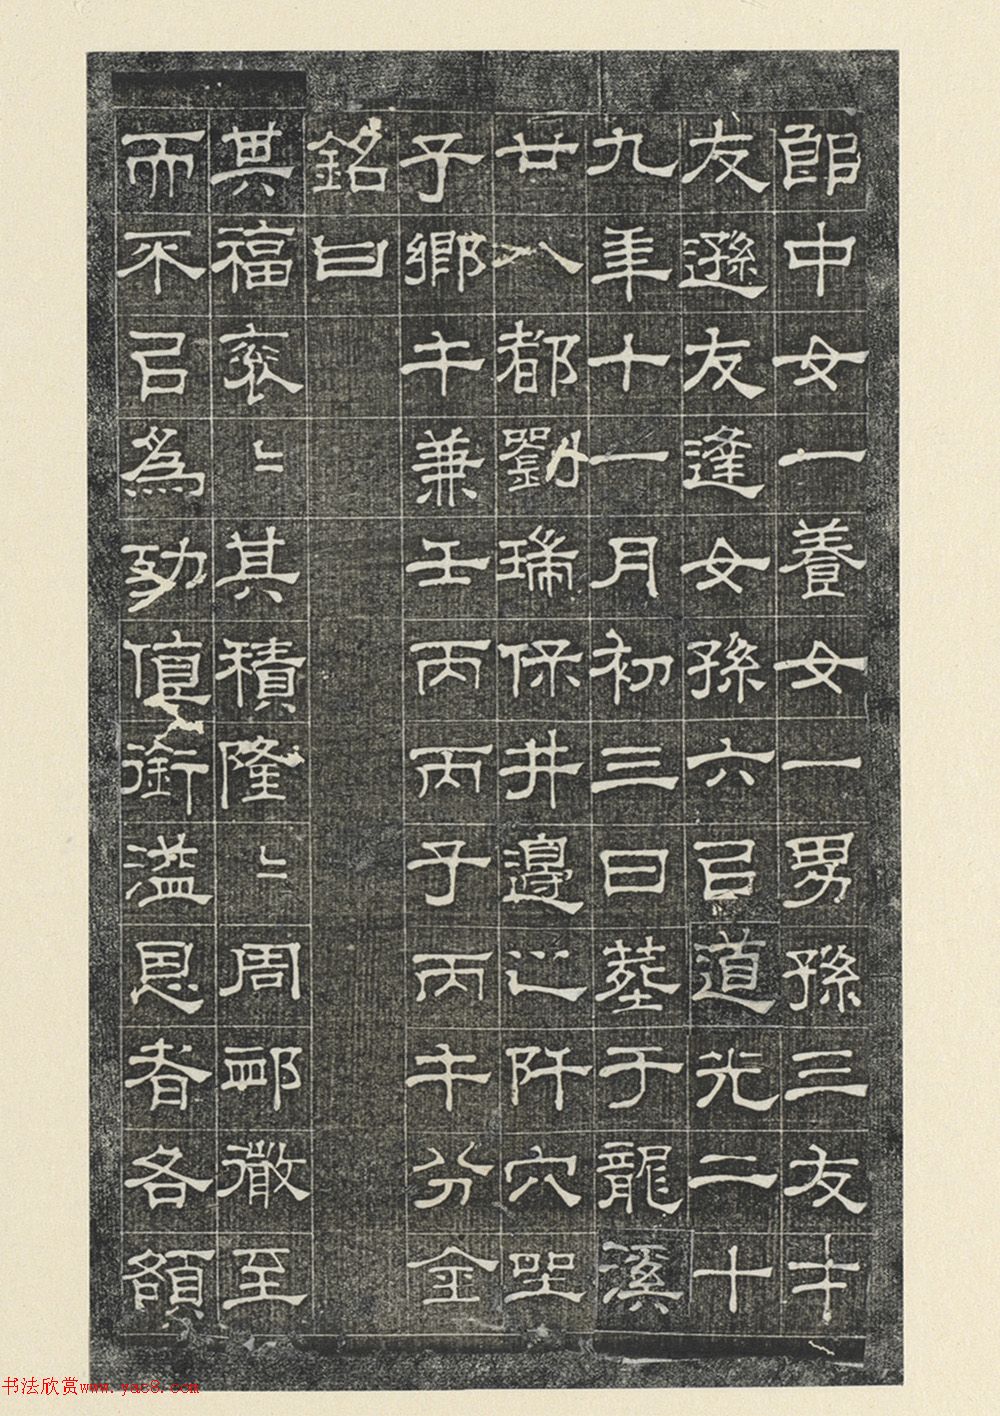 郎中女一養女一男孫三友才
友遜友逢女孫六㠯道光二十
九年十一月初三日葬于龍溪
廿八都劉瑞保井邊之阡穴坐
子鄉午兼壬丙丙子丙午分金
銘曰
其福衮〻其積隆〻周卹微至
而不㠯為劬值銜溢恩者各額
书法欣赏www.yac8.com